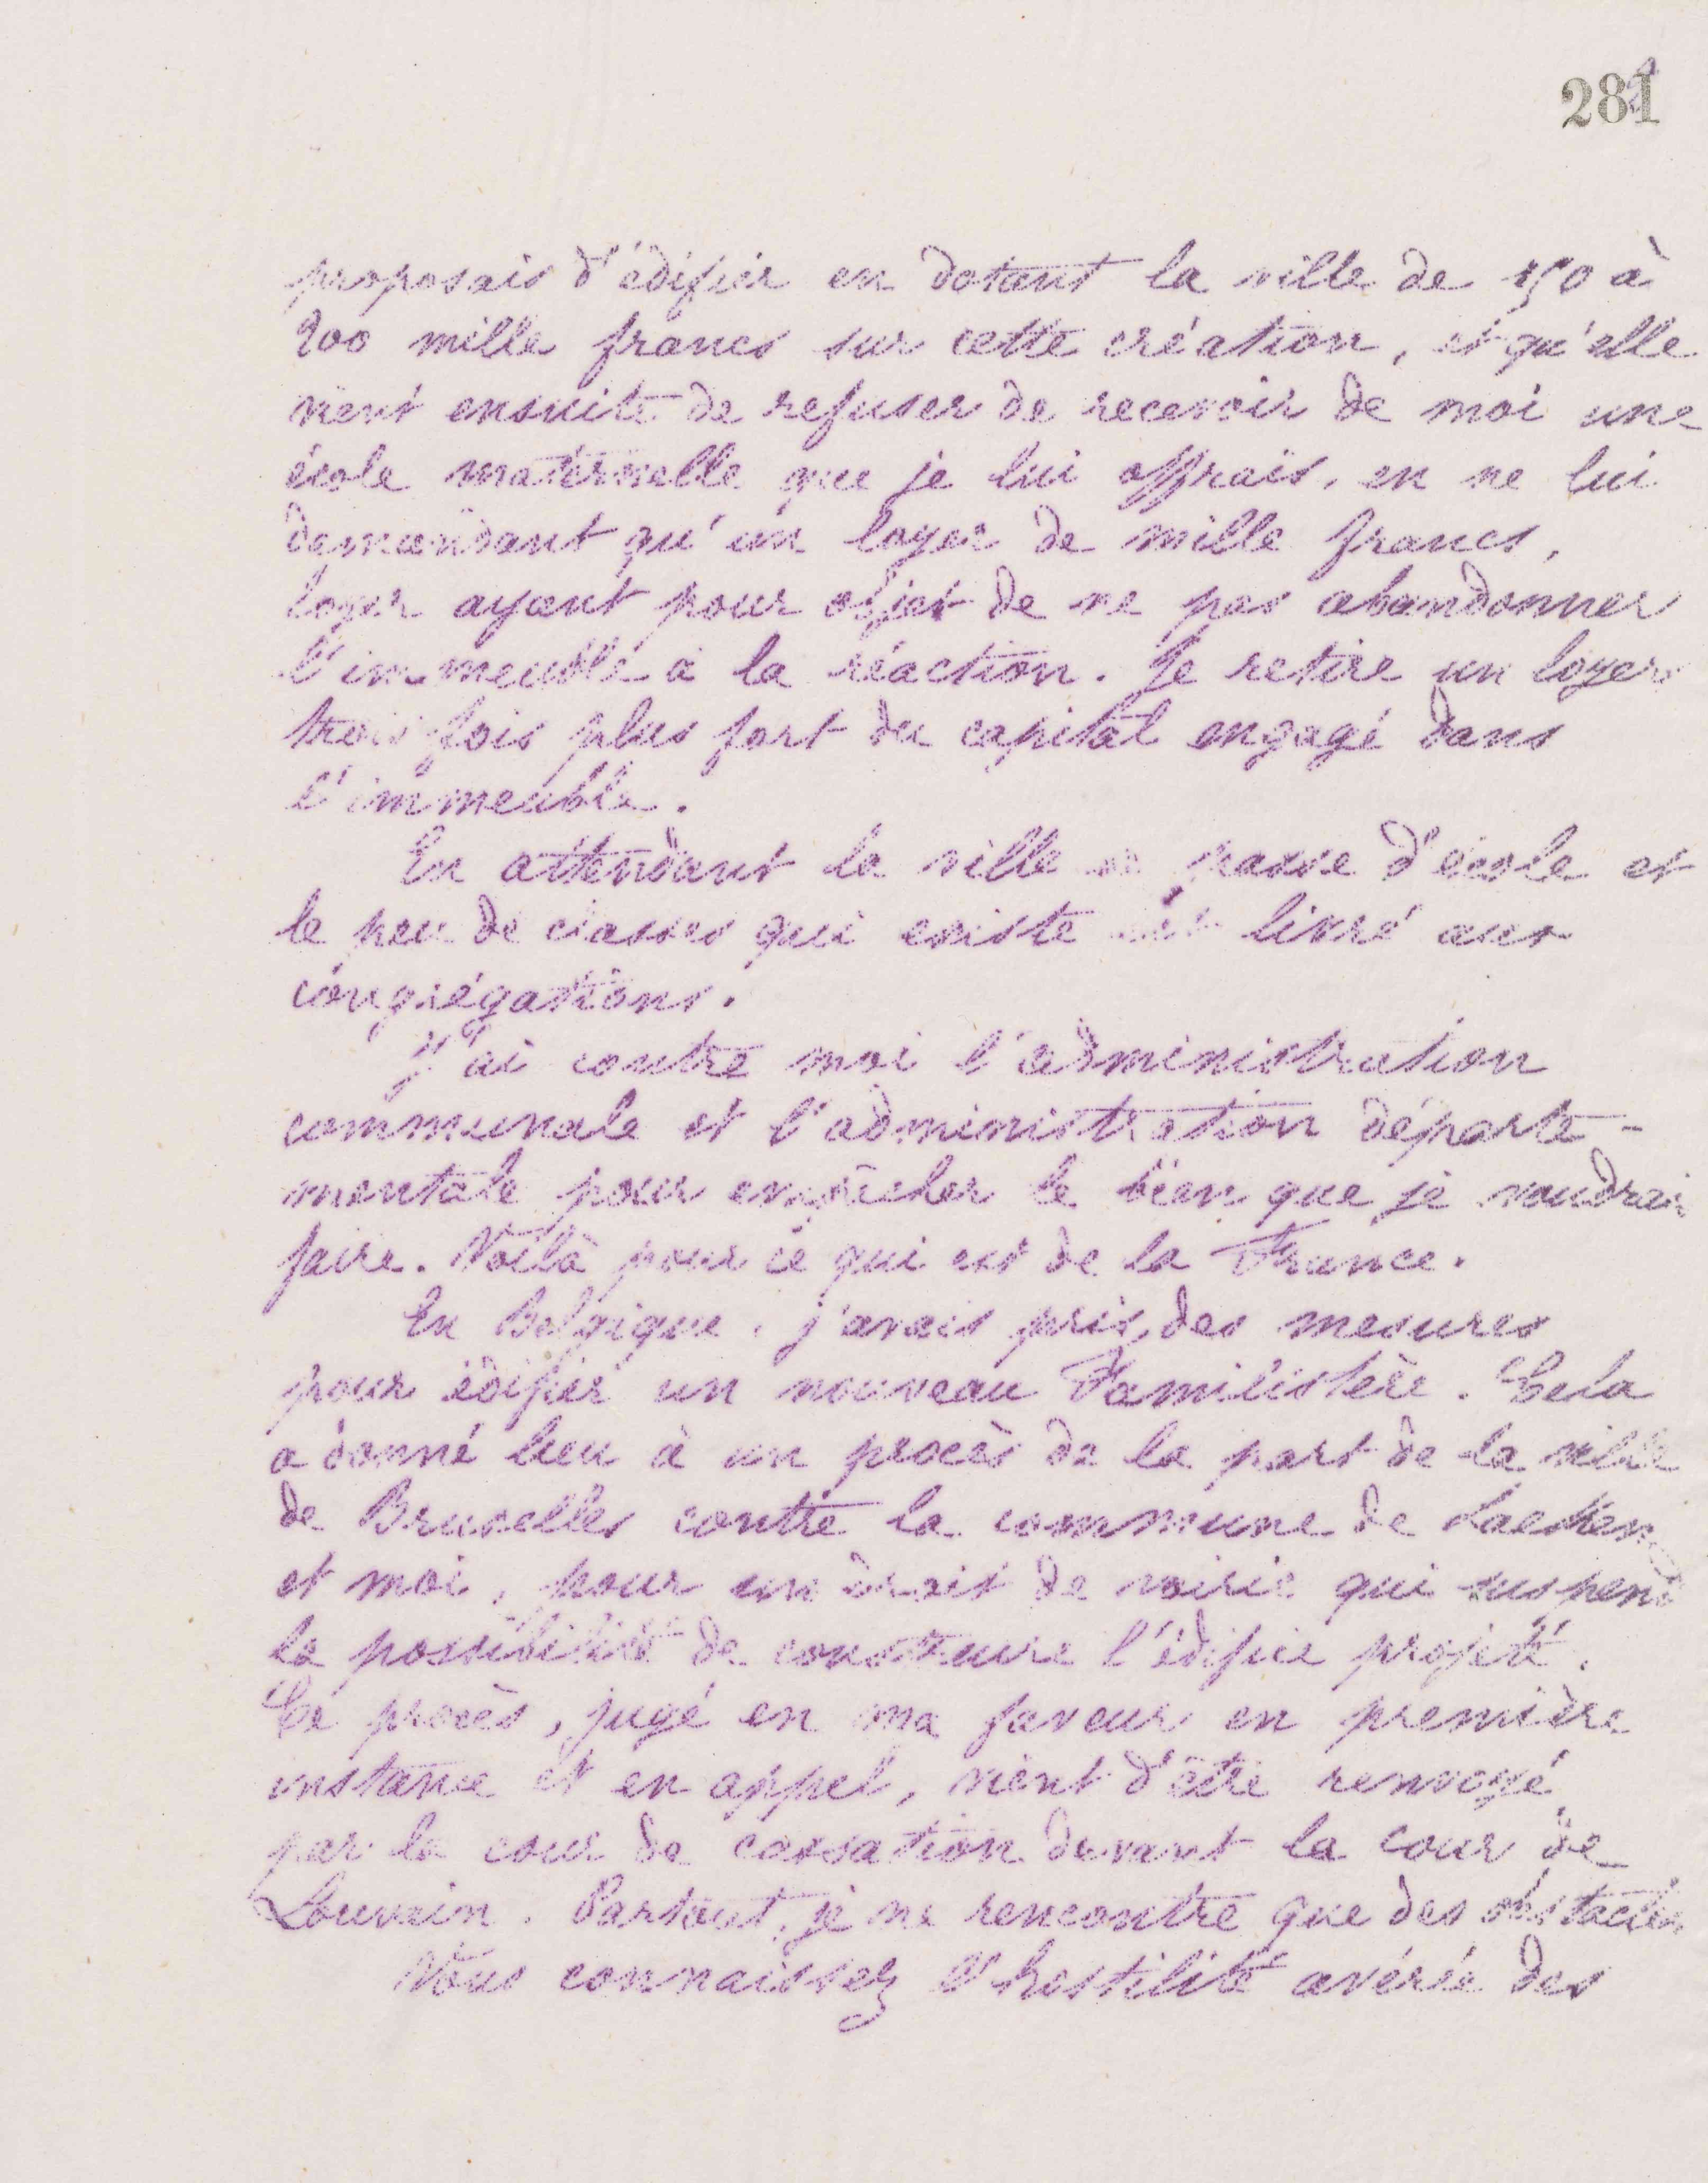 281
proposais d'édifier en dotant la ville de 150 à
200 mille francs sur cette création, et qu'elle
vient ensuite de refuser de recevoir de moi une
école maternelle que je lui offrais, en ne lui
demandant qu'un loyer de mille francs,
loyer ayant pour objet de ne pas abandonner
l'immeuble à la réaction. Je retire un loyer
trois fois plus fort du capital engagé dans
l'immeuble.
En attendant la ville se passe d'école et
le peu de classes qui existe est livré aux
congrégations.
J'ai contre moi l'administration
communale et l'administration départe-
mentale pour empêcher le bien que je voudrais
faire. Voilà pour ce qui est de la France.
En Belgique, j'avais pris des mesures
pour édifier un nouveau Familistère. Cela
a donné lieu à un procès de la part de la ville
de Bruxelles contre la commune de Laeken
et moi, pour un droit de voirie qui suspend
la possibilité de construire l'édifice projeté.
Ce procès, jugé en ma faveur en première
instance et en appel, vient d'être renvoyé
par la cour de cassation devant la cour de
Louvain. Partout, je ne rencontre que des obstacles
Vous connaissez l'hostilité avérée des